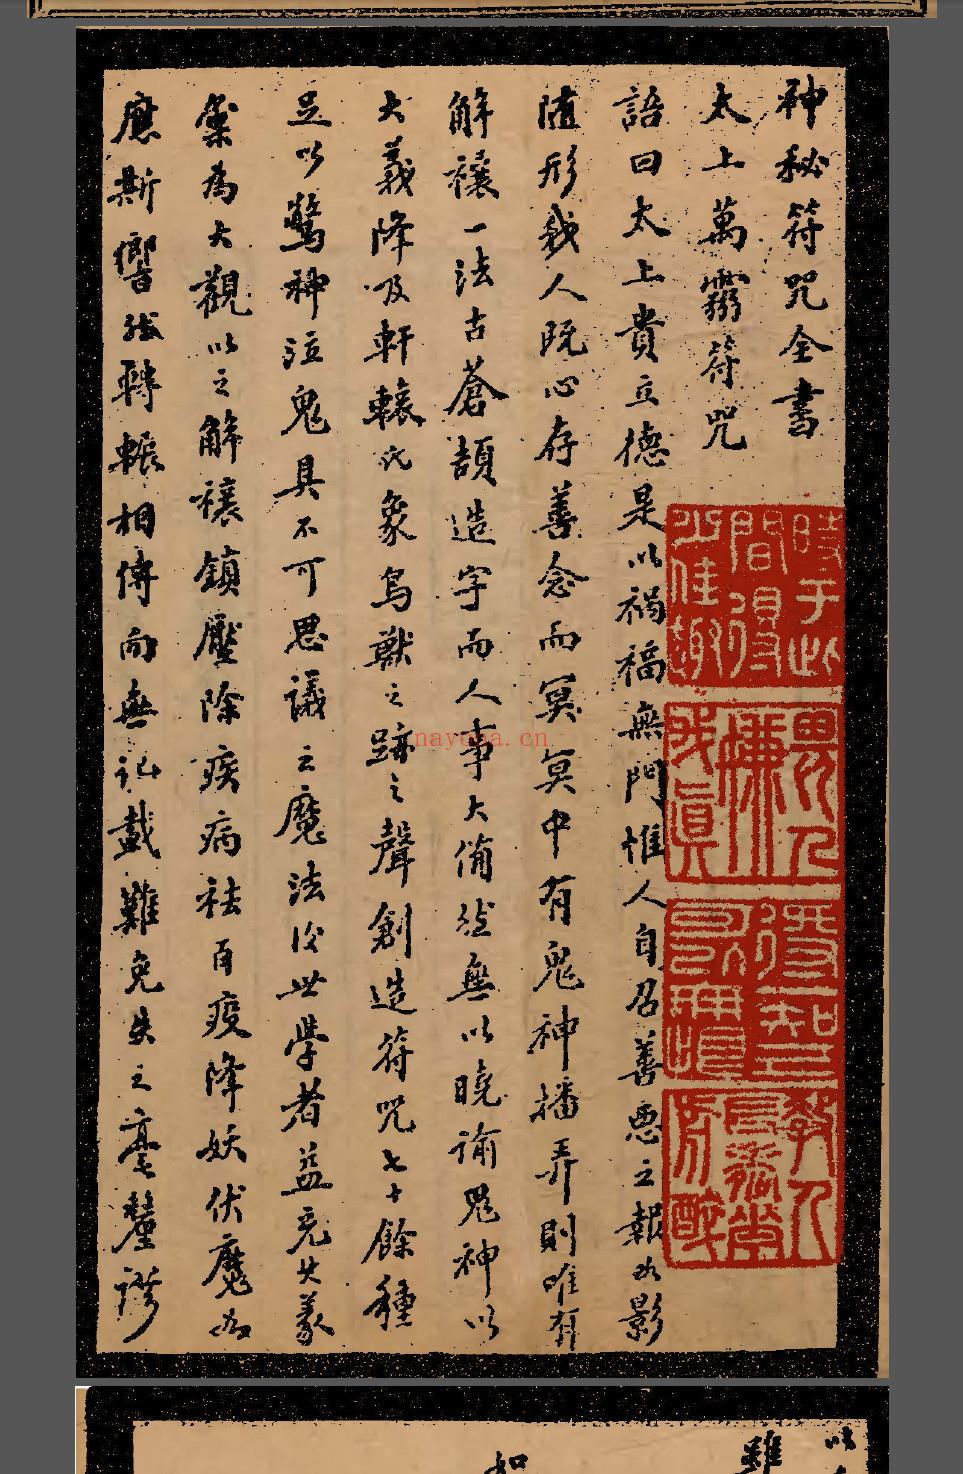 神秘符咒全書
太上萬靈符咒
語曰太上貴立德是以禍福無門惟人自召善惡之報如影
随形我人既心存善念而冥冥中有鬼神播弄則唯有
解禳一法古蒼頡造字而人事大備然無以曉諭鬼神以
大義降及軒轅氏象鳥獸之跡之聲創造符咒七十餘種
足以驚神泣鬼具不可思議之魔法後世學者益充其義
彙為大觀以之解禳鎮壓除疾病祛百疫降妖伏魔如
應斯響然轉輾相傳而無記載難免失之毫釐謬
時于此
間得
少佳趣
畏人
嫌
我真
教人
長
nayona.cn
以
雖
如